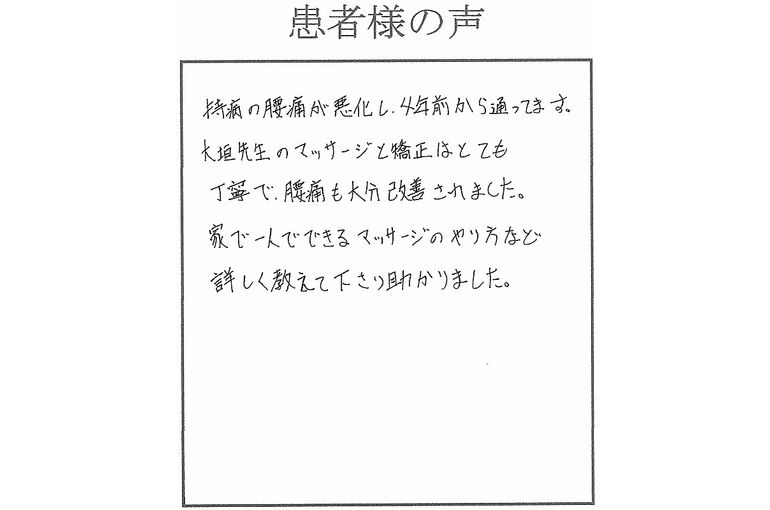 患者様の声
持病の腰痛が悪化し、4年前から通ってます。
大垣先生のマッサージと矯正はとても
丁寧で、腰痛も大分改善されました。
家で一人でできるマッサージのやり方など
詳しく教えて下さり助かりました。